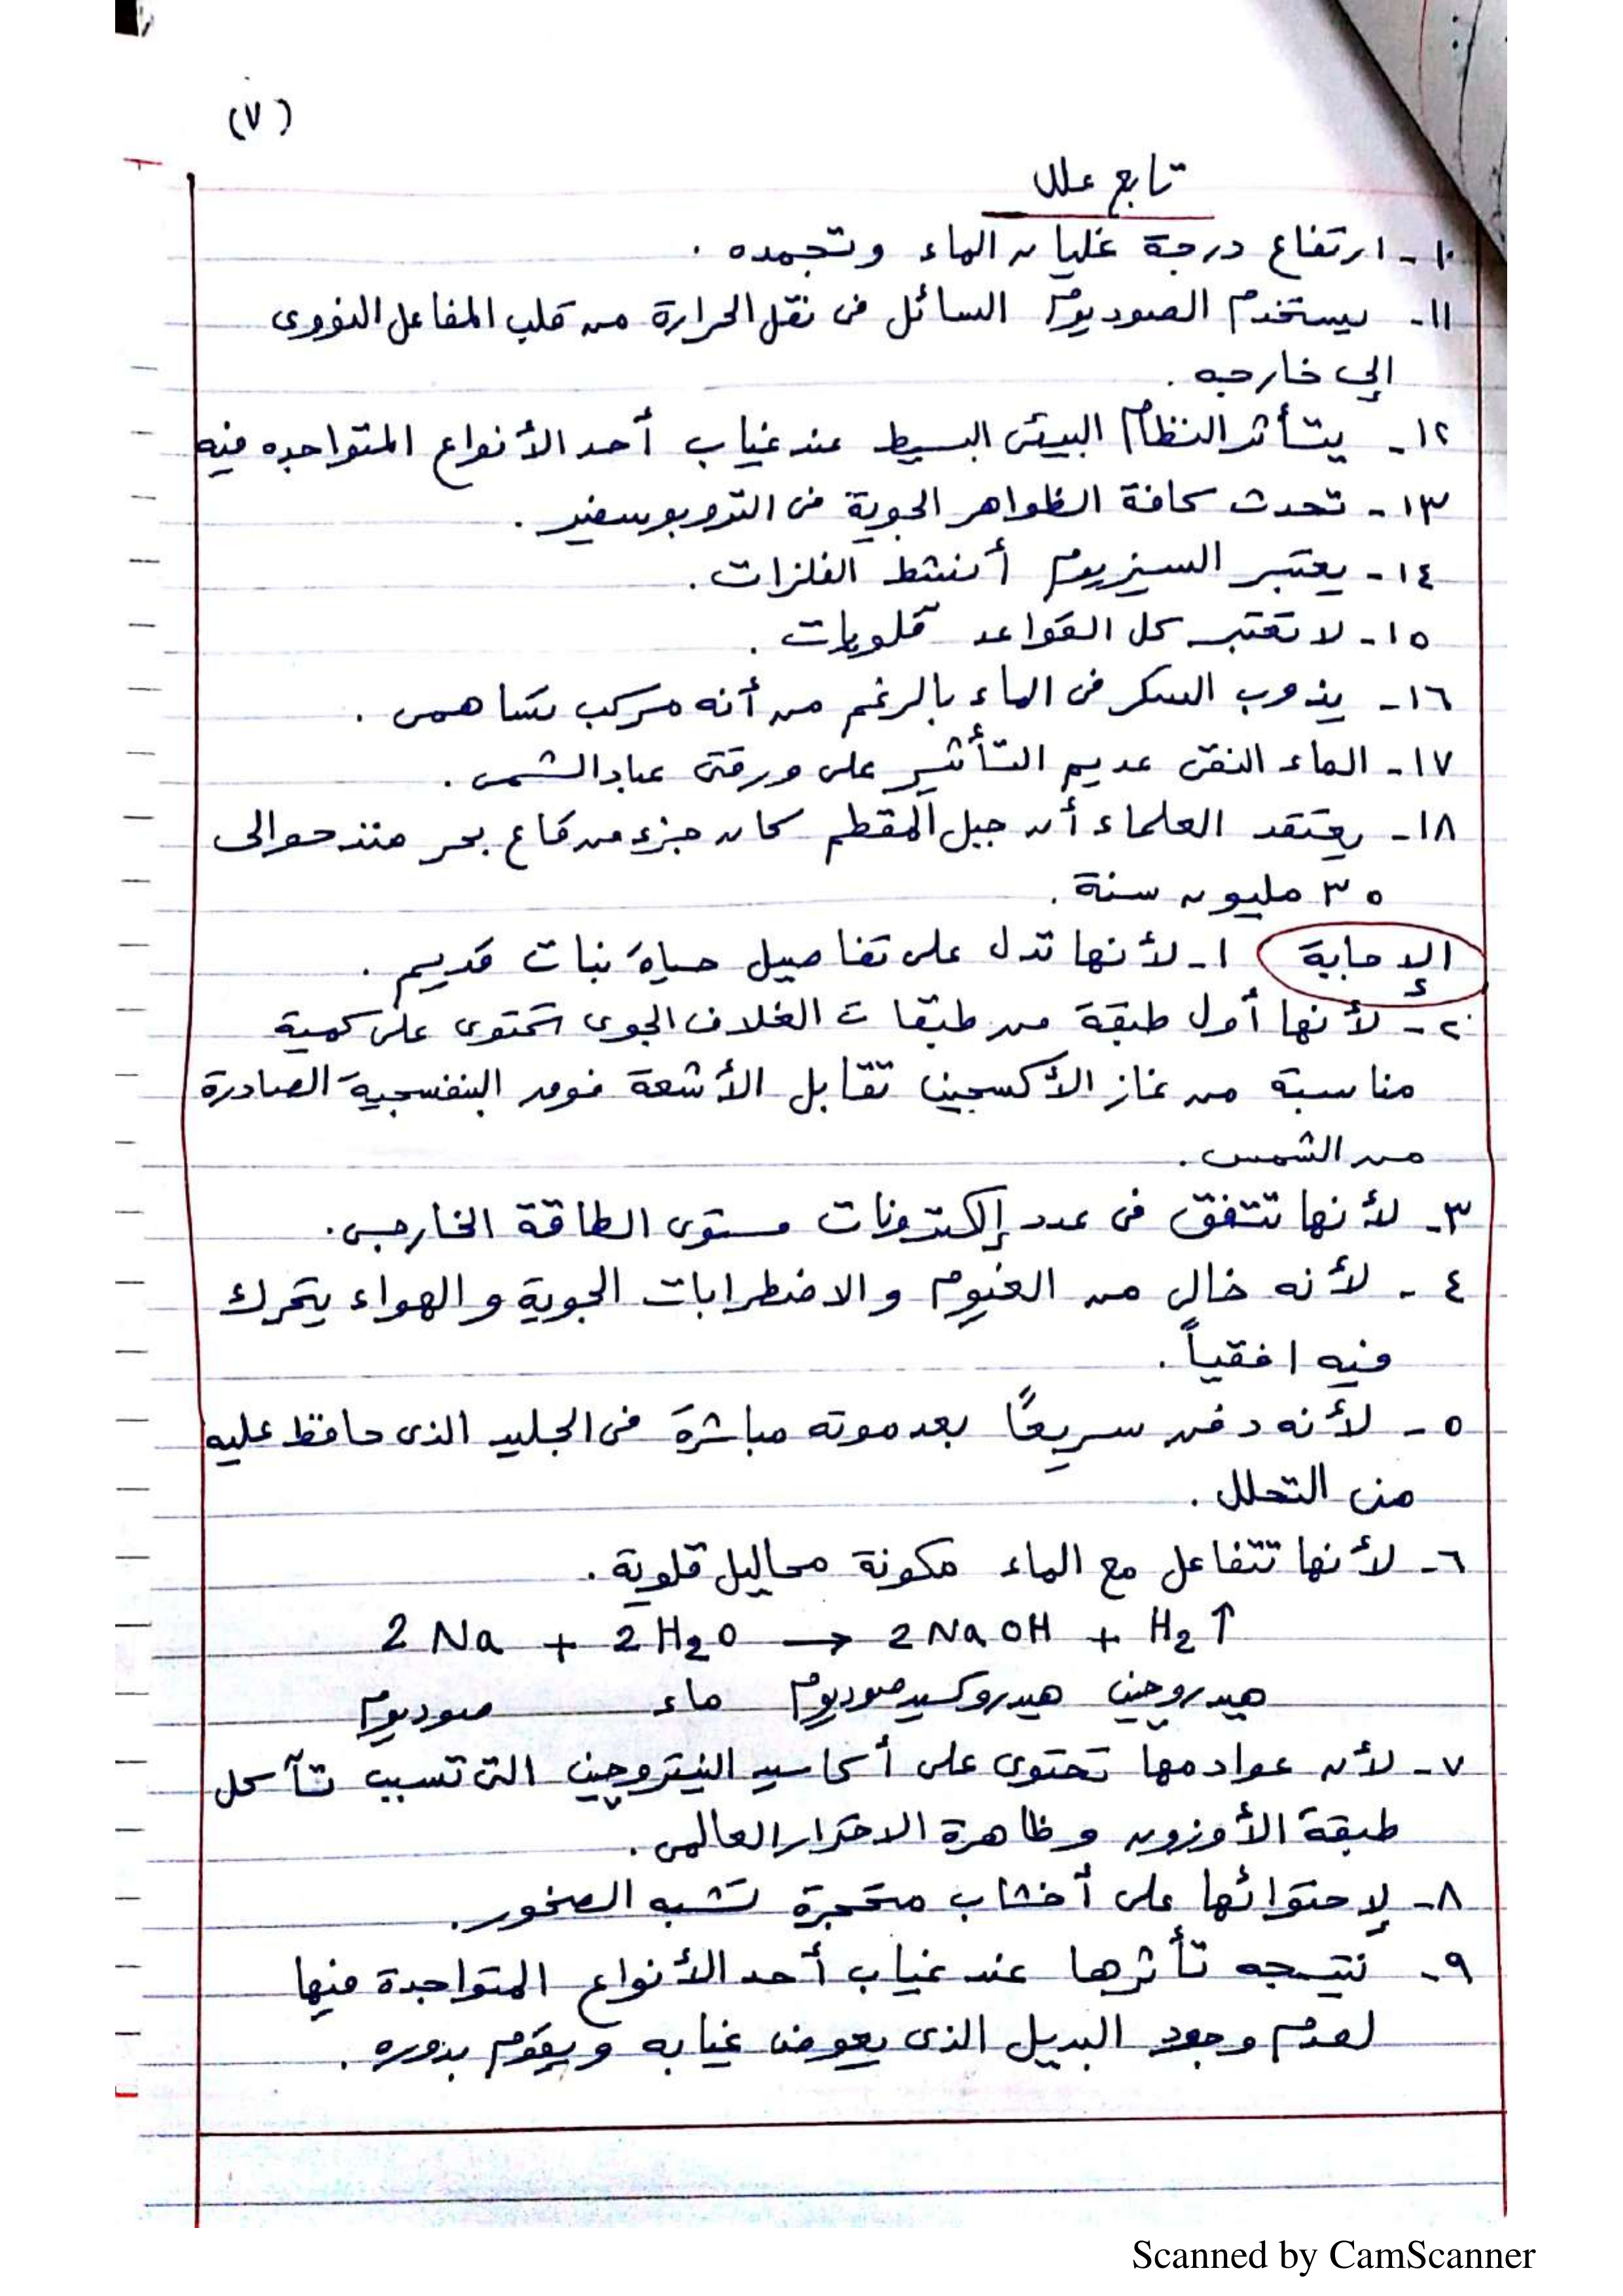 (٧)
تابع علل
١٠- ارتفاع درجة غليان الماء وتجمده .
١١- يستخدم الصوديوم السائل فى نقل الحرارة من قلب المفاعل النووى
إلي خارجه .
١٢- يتأثر النظام البيئى البسيط عند غياب أحد الأنواع المتواجده فيه
١٣- تحدث كافة الظواهر الجوية فى التروبوسفير .
١٤- يعتبر السيزيوم أنشط الفلزات .
١٥- لا تعتبر كل القواعد قلويات .
١٦- يذوب السكر فى الماء بالرغم من أنه مركب تساهمى .
١٧- الماء النقى عديم التأثير على ورقتى عباد الشمس .
١٨- يعتقد العلماء أن جبل المقطم كان جزء من قاع بحر منذ حوالى
٣٥ مليون سنة .
الإجابة ١- لأنها تدل على تفاصيل حياة نبات قديم .
٢- لأنها أول طبقة من طبقات الغلاف الجوى تحتوى على كمية
مناسبة من غاز الأكسجين تقابل الأشعة فوق البنفسجية الصادرة
من الشمس .
٣- لأنها تتفق فى عدد إلكترونات مستوى الطاقة الخارجى .
٤- لأنه خالى من الغيوم والاضطرابات الجوية والهواء يتحرك
فيه افقياً .
٥- لأنه دفن سريعاً بعد موته مباشرة فى الجليد الذى حافظ عليه
من التحلل .
٦- لأنها تتفاعل مع الماء مكونة محاليل قلوية .
2 Na + 2 H₂O → 2 NaOH + H₂ ↑
هيدروجين هيدروكسيد صوديوم ماء صوديوم
٧- لأن عوادمها تحتوى على أكاسيد النيتروجين التى تسبب تآكل
طبقة الأوزون وظاهرة الاحترار العالمى .
٨- لإحتوائها على أخشاب متحجرة تشبه الصخور .
٩- نتيجه تأثرها عند غياب أحد الأنواع المتواجدة فيها
لعدم وجود البديل الذى يعوض غيابه ويقوم بدوره .
Scanned by CamScanner